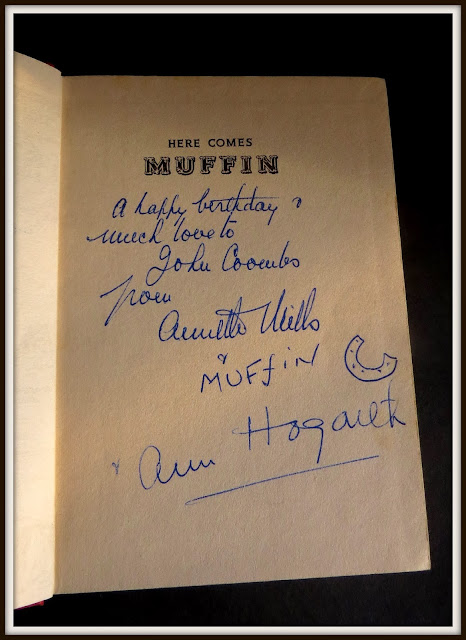 HERE COMES
MUFFIN
A happy birthday &
much love to
John Coombs
from
Annette Mills
& MUFFIN
& Ann Hogarth